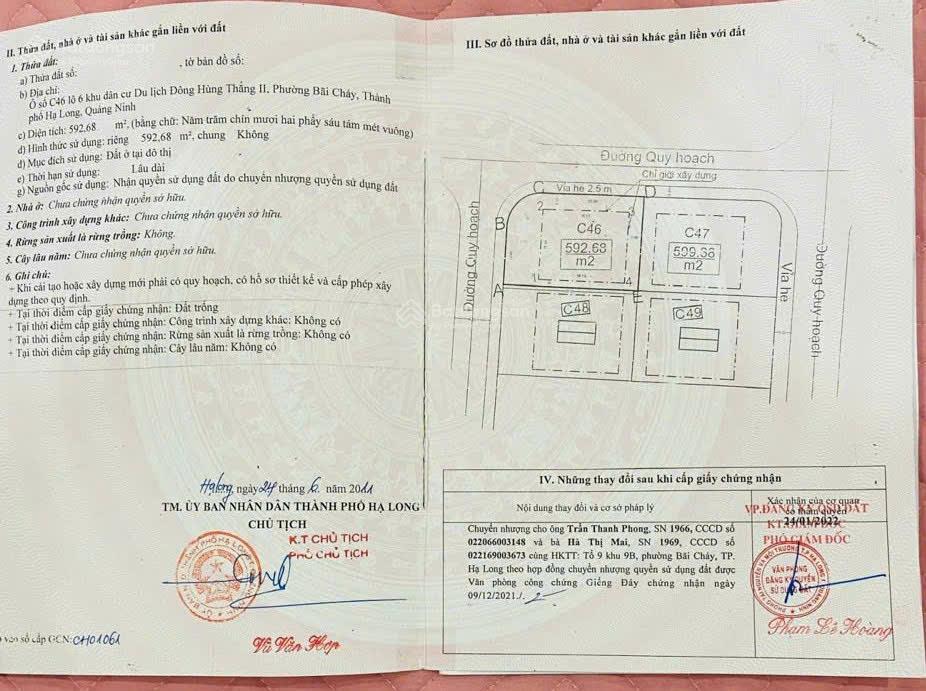 II. Thửa đất, nhà ở và tài sản khác gắn liền với đất
1. Thửa đất:
a) Thửa đất số: , tờ bản đồ số:
b) Địa chỉ:
Ô số C46 lô 6 khu dân cư Du lịch Đông Hùng Thắng II, Phường Bãi Cháy, Thành
phố Hạ Long, Quảng Ninh
c) Diện tích: 592,68 m², (bằng chữ: Năm trăm chín mươi hai phẩy sáu tám mét vuông)
d) Hình thức sử dụng: riêng 592,68 m², chung Không
đ) Mục đích sử dụng: Đất ở tại đô thị
e) Thời hạn sử dụng: Lâu dài
g) Nguồn gốc sử dụng: Nhận quyền sử dụng đất do chuyển nhượng quyền sử dụng đất
2. Nhà ở: Chưa chứng nhận quyền sở hữu.
3. Công trình xây dựng khác: Chưa chứng nhận quyền sở hữu.
4. Rừng sản xuất là rừng trồng: Không.
5. Cây lâu năm: Chưa chứng nhận quyền sở hữu.
6. Ghi chú:
+ Khi cải tạo hoặc xây dựng mới phải có quy hoạch, có hồ sơ thiết kế và cấp phép xây
dựng theo quy định.
+ Tại thời điểm cấp giấy chứng nhận: Đất trống
+ Tại thời điểm cấp giấy chứng nhận: Công trình xây dựng khác: Không có
+ Tại thời điểm cấp giấy chứng nhận: Rừng sản xuất là rừng trồng: Không có
+ Tại thời điểm cấp giấy chứng nhận: Cây lâu năm: Không có
Hạ Long, ngày 24 tháng 6 năm 2011
TM. ỦY BAN NHÂN DÂN THÀNH PHỐ HẠ LONG
CHỦ TỊCH
K.T CHỦ TỊCH
PHÓ CHỦ TỊCH
Vũ Văn Hợp
số cấp GCN: CH01061
III. Sơ đồ thửa đất, nhà ở và tài sản khác gắn liền với đất
Đường Quy hoạch
Chỉ giới xây dựng
C Vỉa hè 2.5 m D
B
2 3
C46
592.68
m2
C47
599.38
m2
1 4
A E
C48
C49
Đường Quy hoạch
Vỉa hè
Đường Quy hoạch
IV. Những thay đổi sau khi cấp giấy chứng nhận
Nội dung thay đổi và cơ sở pháp lý
Xác nhận của cơ quan
có thẩm quyền
Chuyển nhượng cho ông Trần Thanh Phong, SN 1966, CCCD số
022066003148 và bà Hà Thị Mai, SN 1969, CCCD số
022169003673 cùng HKTT: Tổ 9 khu 9B, phường Bãi Cháy, TP.
Hạ Long theo hợp đồng chuyển nhượng quyền sử dụng đất được
Văn phòng công chứng Giếng Đáy chứng nhận ngày
09/12/2021./.
VP.ĐĂNG KÝ QSD ĐẤT
24/01/2022
KT.GIÁM ĐỐC
PHÓ GIÁM ĐỐC
VĂN PHÒNG
ĐĂNG KÝ QUYỀN
SỬ DỤNG ĐẤT
Phạm Lê Hoàng